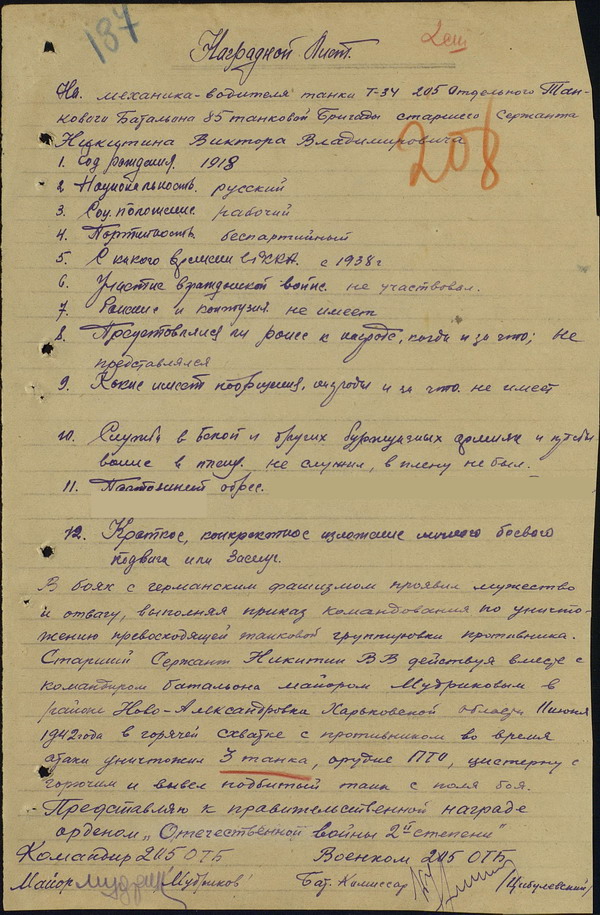 187
2 сш
Наградной Лист.
На механика-водителя танка Т-34 205 Отдельного Тан-
кового Батальона 85 танковой Бригады старшего Сержанта
Никитина Виктора Владимировича
208
1. Год рождения. 1918
2. Национальность. русский
3. Соц. положение рабочий
4. Партийность беспартийный
5. С какого времени в РККА. с 1938 г
6. Участие в гражданской войне. не участвовал.
7. Ранение и контузия не имеет
8. Представлялся ли ранее к награде, когда и за что; не
представлялся
9. Какие имеет поощрения, награды и за что. не имеет
10. Служба в белой и других буржуазных армиях и
в плену. не служил, в плену не был.
11. Постоянный адрес.
12. Краткое, конкретное изложение личного боевого
подвига или Заслуг.
В боях с германским фашизмом проявил мужество
и отвагу, выполняя приказ командования по уничто-
жению превосходящей танковой группировки противника.
Старший Сержант Никитин ВВ действуя вместе с
командиром батальона майором Мудриковым в
районе Ново-Александровка Харьковской области 11 июня
1942 года в горячей схватке с противником во время
атаки уничтожил 3 танка, орудие ПТО, цистерну с
горючим и вывел подбитый танк с поля боя.
Представляю к правительственной награде
орденом „Отечественной войны 2й степени"
Командир 205 ОТБ Военком 205 ОТБ
Майор Мудриков Бат. Комиссар /Цибулевский/